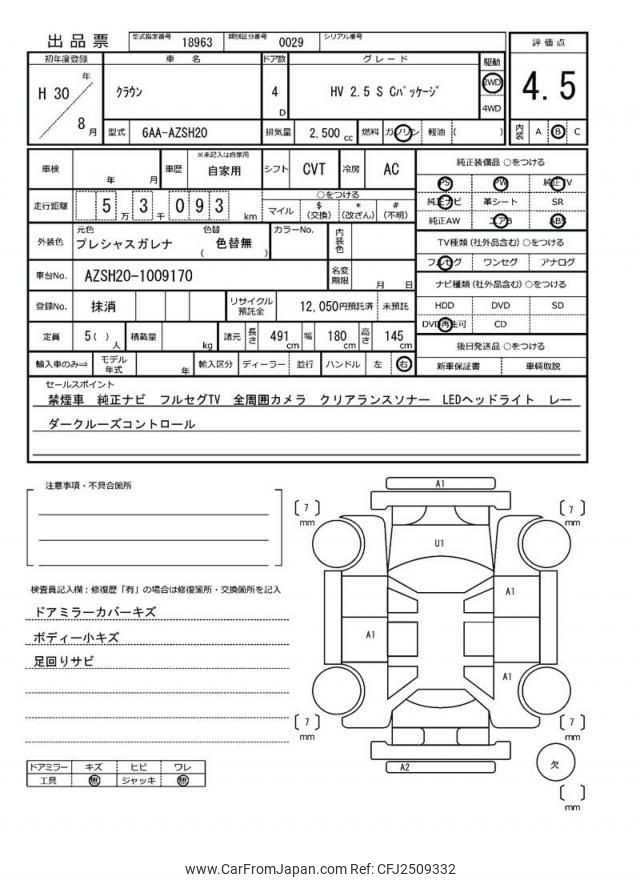 出品票
型式指定番号 18963 類別区分番号 0029 シリアル番号
初年度登録 車名 ドア数 グレード 駆動 評価点
H 30 年 8 月 クラウン 4 D HV 2.5 S Cパッケージ 2WD 4WD 4.5
型式 6AA-AZSH20 排気量 2,500 cc 燃料 ガソリン 軽油 ( ) 内装 A B C
車検 年 月 車歴 ※未記入は自家用 自家用 シフト CVT 冷房 AC
純正装備品 ○をつける
PS PW 純正TV
純正ナビ 革シート SR
純正AW エアB ABS
走行距離 5 万 3 千 0 9 3 km
○をつける
マイル $ (交換) * (改ざん) # (不明)
外装色 元色 プレシャスガレナ 色替 ( 色替無 ) カラーNo. 内装色
TV種類 (社外品含む) ○をつける
フルセグ ワンセグ アナログ
車台No. AZSH20-1009170 名変期限 月 日
ナビ種類 (社外品含む) ○をつける
HDD DVD SD
DVD再生可 CD
登録No. 抹消 リサイクル預託金 12,050円預託済 未預託
定員 5 ( ) 人 積載量 kg 諸元 長さ 491 cm 幅 180 cm 高さ 145 cm
後日発送品 ○をつける
新車保証書 車輌取説
輸入車のみ⇒ モデル年式 年 輸入区分 ディーラー 並行 ハンドル 左 右
セールスポイント
禁煙車 純正ナビ フルセグTV 全周囲カメラ クリアランスソナー LEDヘッドライト レー
ダークルーズコントロール
注意事項・不具合箇所
検査員記入欄：修復歴「有」の場合は修復箇所・交換箇所を記入
ドアミラーカバーキズ
ボディー小キズ
足回りサビ
ドアミラー キズ ヒビ ワレ
工具 無 ジャッキ 無
A1
7 mm
7 mm
U1
A1
A1
A1
7 mm
7 mm
A2
欠
mm
www.CarFromJapan.com Ref: CFJ2509332